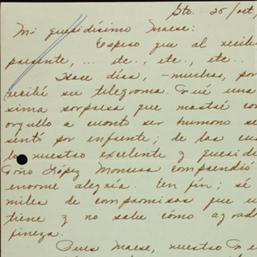 Sto. 25/oct/
Mi queridísimo Maese:
Espero que al recibo
presente, ... etc., etc., etc..
Hace días, -muchas, por
recibí su telegrama. Fué una
sima sorpresa que mostré con
orgullo a cuont ser humano se
sentó por enfrente; de las cua
lo nuestro excelente y querid
Toño López Mancera comprendió
enorme alegría. En fin; sé
miles de compromisos que u
tiene y no sabe cómo agrade
fineza.
Pues Maese, nuestro